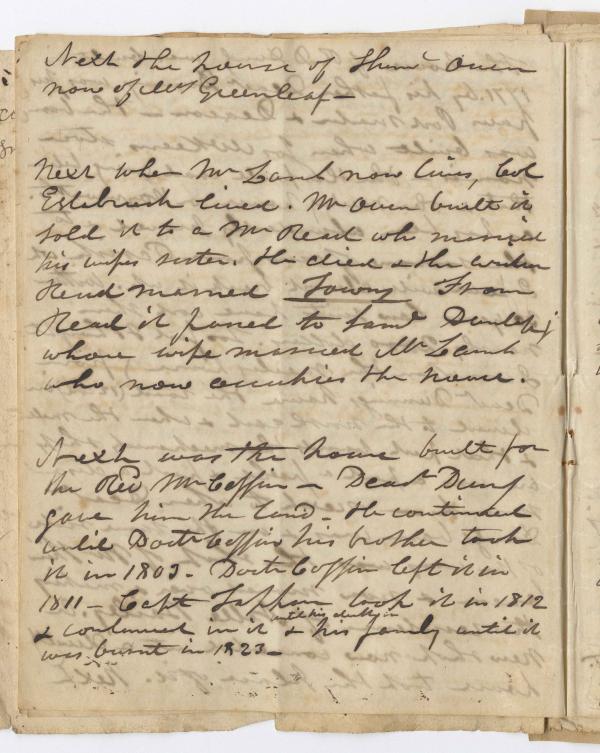 Next the house of Thos Owen
now of Mrs Greenleaf —
Next where Mr Lamb now lives, Col
Estabrook lived. Mr Owen built it
sold it to a Mr Read who married
his wifes sister. He died & the widow
Read married Towns From
Read it passed to Saml Dunlap
whose wife married Mr Lamb
who now occupies the house.
Next was the house built for
the Rev Mr Coffin — Deacn Dung
gave him the land — He continued
until Doctr Coffin his brother took
it in 1803 — Doctr Coffin left it in
1811 — Capt Tappan took it in 1812
& continued in it until his death in & his family until it
was burnt in 1823 —